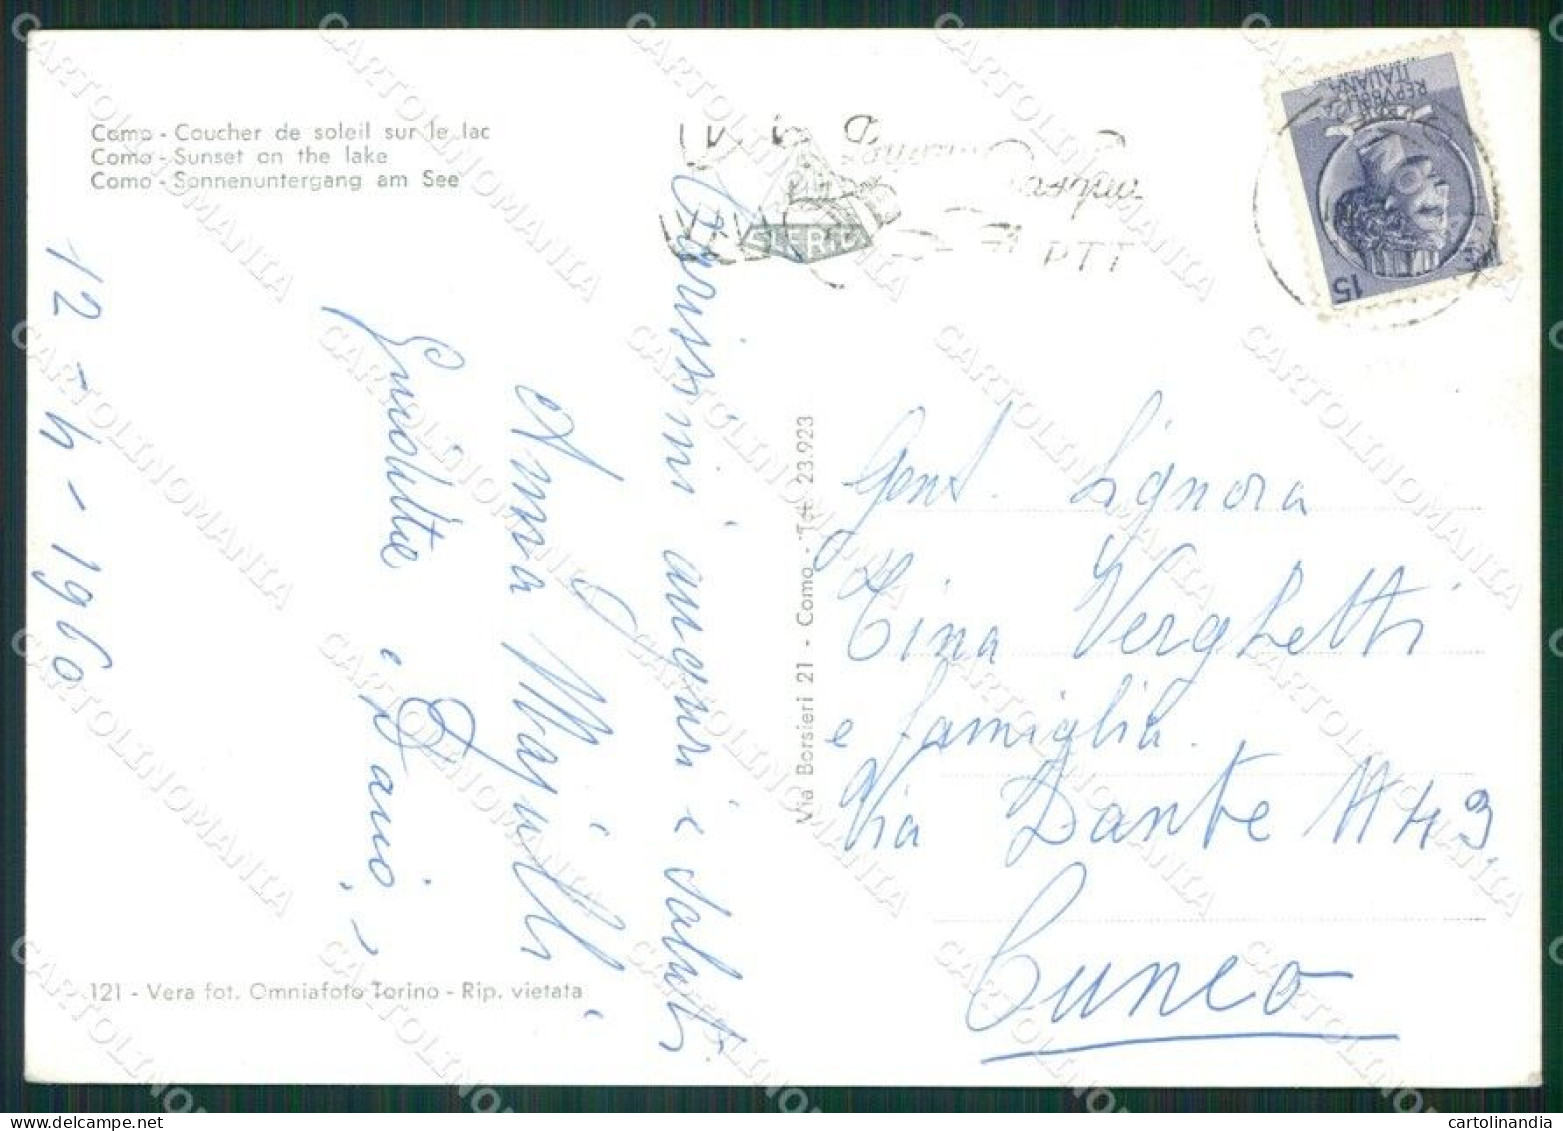 Como - Coucher de soleil sur le lac
Como - Sunset on the lake
Como - Sonnenuntergang am See
12-4-1960
Carissimi auguri e saluti
Anna
e Dario,
121 - Vera fot. Omniafoto Torino - Rip. vietata
Via Borsieri 21 - Como - Tel. 23.923
REPVBBLICA
ITALIANA
15
PTT
Gent. Signora
Tina Verghetti
e famiglia.
Via Dante N 43
Cuneo
CARTOLINOMANIA
cartolinandia